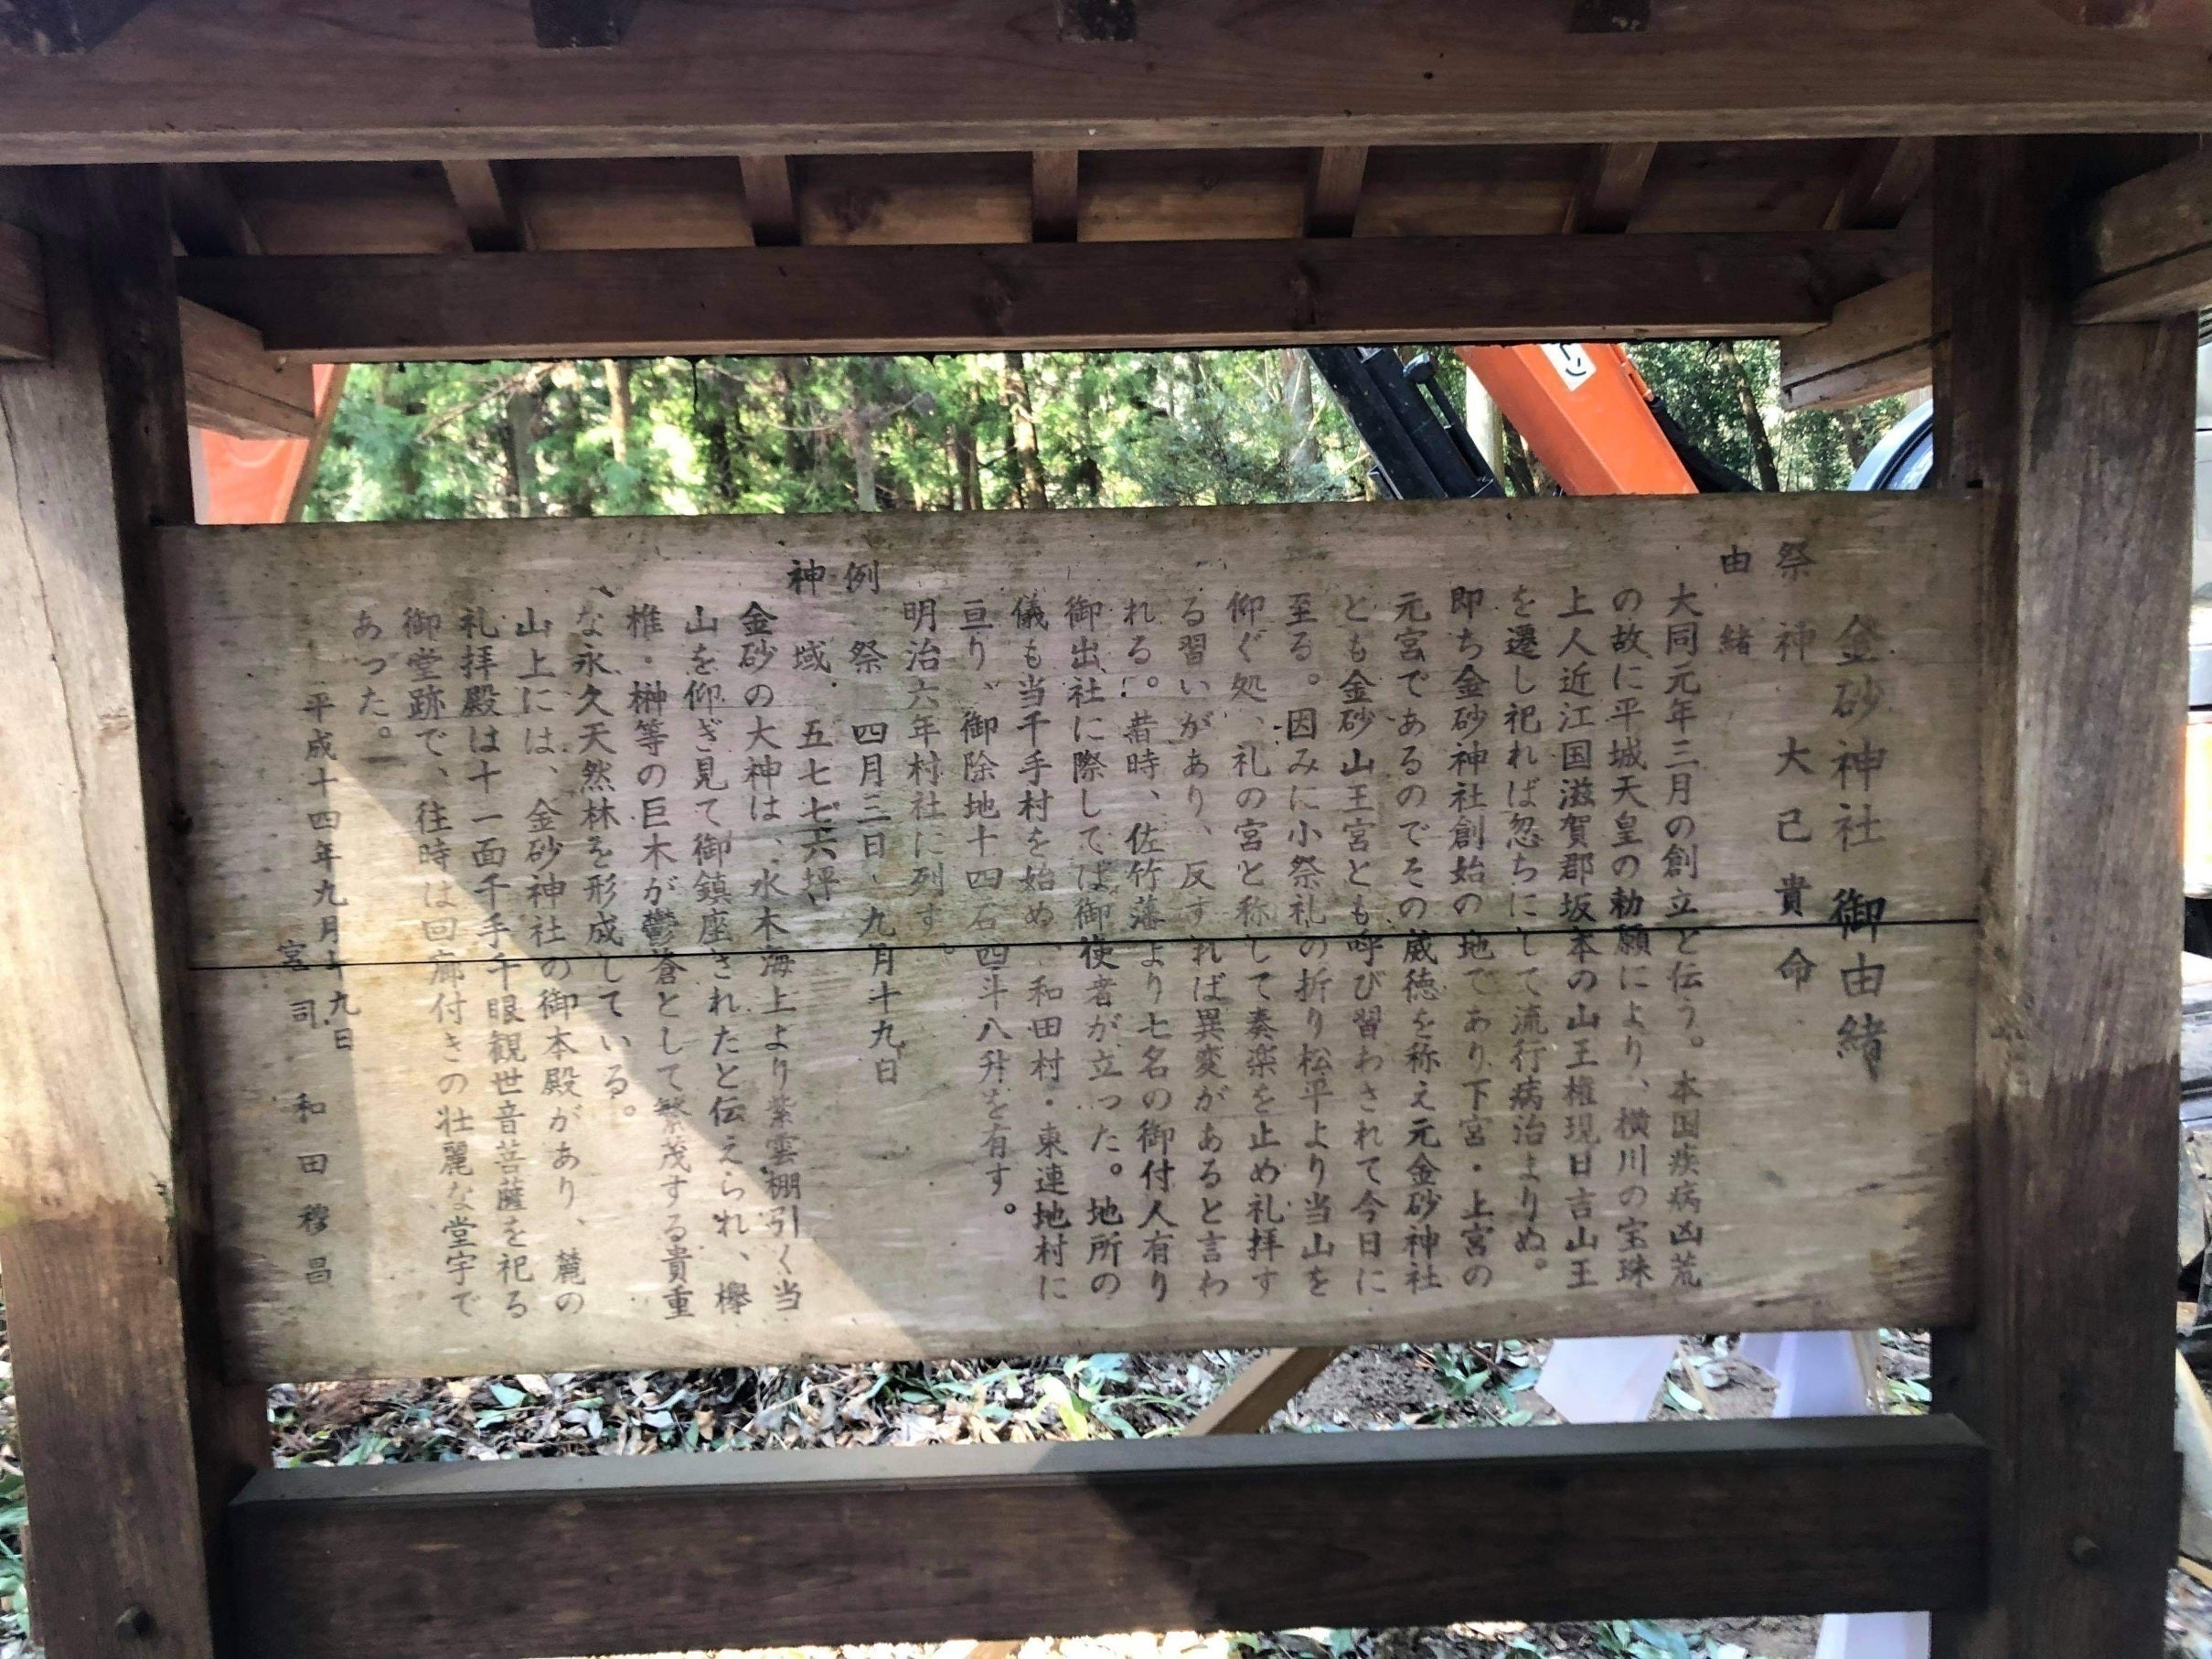 金砂神社 御由緒
祭神 大己貴命
由緒
大同元年三月の創立と伝う。本国疾病凶荒
の故に平城天皇の勅願により、横川の宝珠
上人近江国滋賀郡坂本の山王権現日吉山王
を遷し祀れば忽ちにして流行病治よりぬ。
即ち金砂神社創始の地であり下宮・上宮の
元宮であるのでその威徳を称え元金砂神社
とも金砂山王宮とも呼び習わされて今日に
至る。因みに小祭礼の折り松平より当山を
仰ぐ処、礼の宮と称して奏楽を止め礼拝す
る習いがあり、反すれば異変があると言わ
れる。昔時、佐竹藩より七名の御付人有り
御出社に際しては御使者が立った。地所の
儀も当千手村を始め、和田村・東連地村に
亘り、御除地十四石四斗八升を有す。
明治六年村社に列す。
例祭 四月三日、九月十九日
神域 五七七六坪
金砂の大神は、水木海上より紫雲棚引く当
山を仰ぎ見て御鎮座されたと伝えられ、欅
椎・榊等の巨木が鬱蒼として繁茂する貴重
な永久天然林を形成している。
山上には、金砂神社の御本殿があり、麓の
礼拝殿は十一面千手千眼観世音菩薩を祀る
御堂跡で、往時は回廊付きの壮麗な堂宇で
あった。
平成十四年九月十九日
宮司 和田穆昌